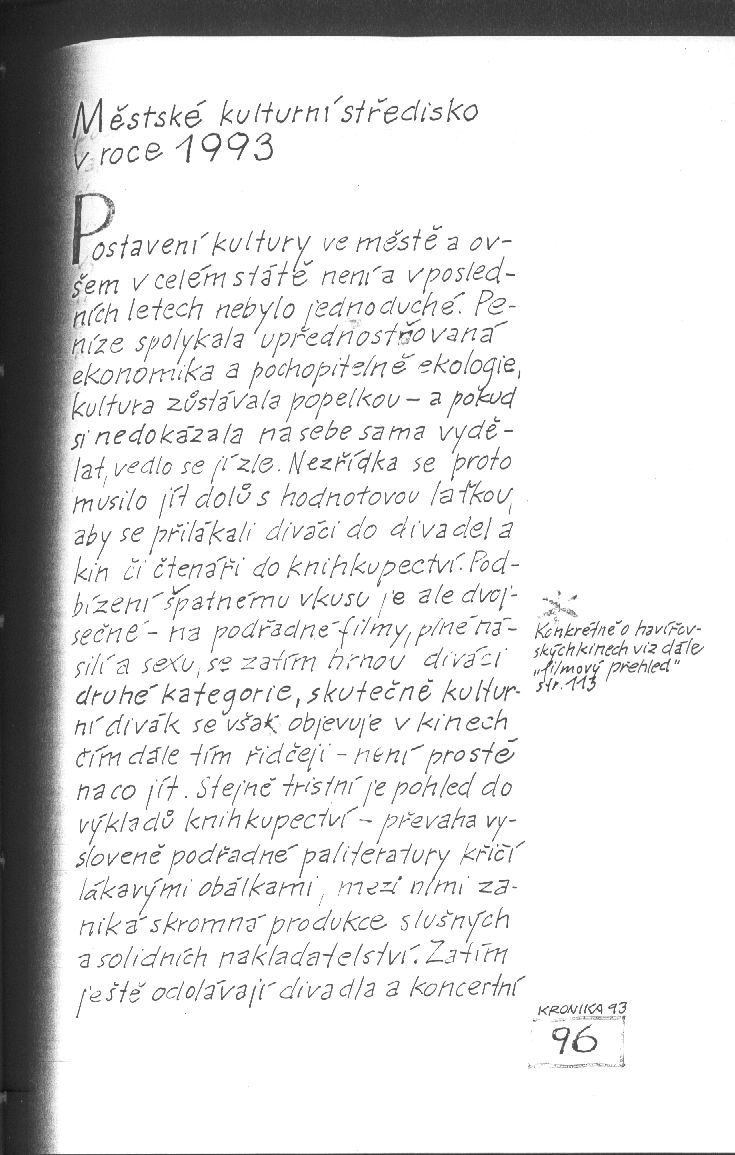 Městské kulturní středisko
v roce 1993
Postavení kultury ve městě a ov-
šem v celém státě není a v posled-
ních letech nebylo jednoduché. Pe-
níze spolykala upřednostňovaná
ekonomika a pochopitelně ekologie,
kultura zůstávala popelkou – a pokud
si nedokázala na sebe sama vydě-
lat, vedlo se jí zle. Nezřídka se proto
musilo jít dolů s hodnotovou laťkou,
aby se přilákali diváci do divadel a
kin či čtenáři do knihkupectví. Pod-
bízení špatnému vkusu je ale dvoj-
sečné – na podřadné filmy, plné ná-
silí a sexu, se zatím hrnou diváci
druhé kategorie, skutečně kultur-
ní divák se však objevuje v kinech
čím dále tím řidčeji – není prostě
na co jít. Stejně tristní je pohled do
výkladů knihkupectví – převaha vy-
sloveně podřadné paliteratury křičí
lákavými obálkami, mezi nimi za-
niká skromná produkce slušných
a solidních nakladatelství. Zatím
ještě odolávají divadla a koncertní
Konkrétně o havířov-
ských kinech viz dále
„filmový přehled"
str. 113
KRONIKA 93
96